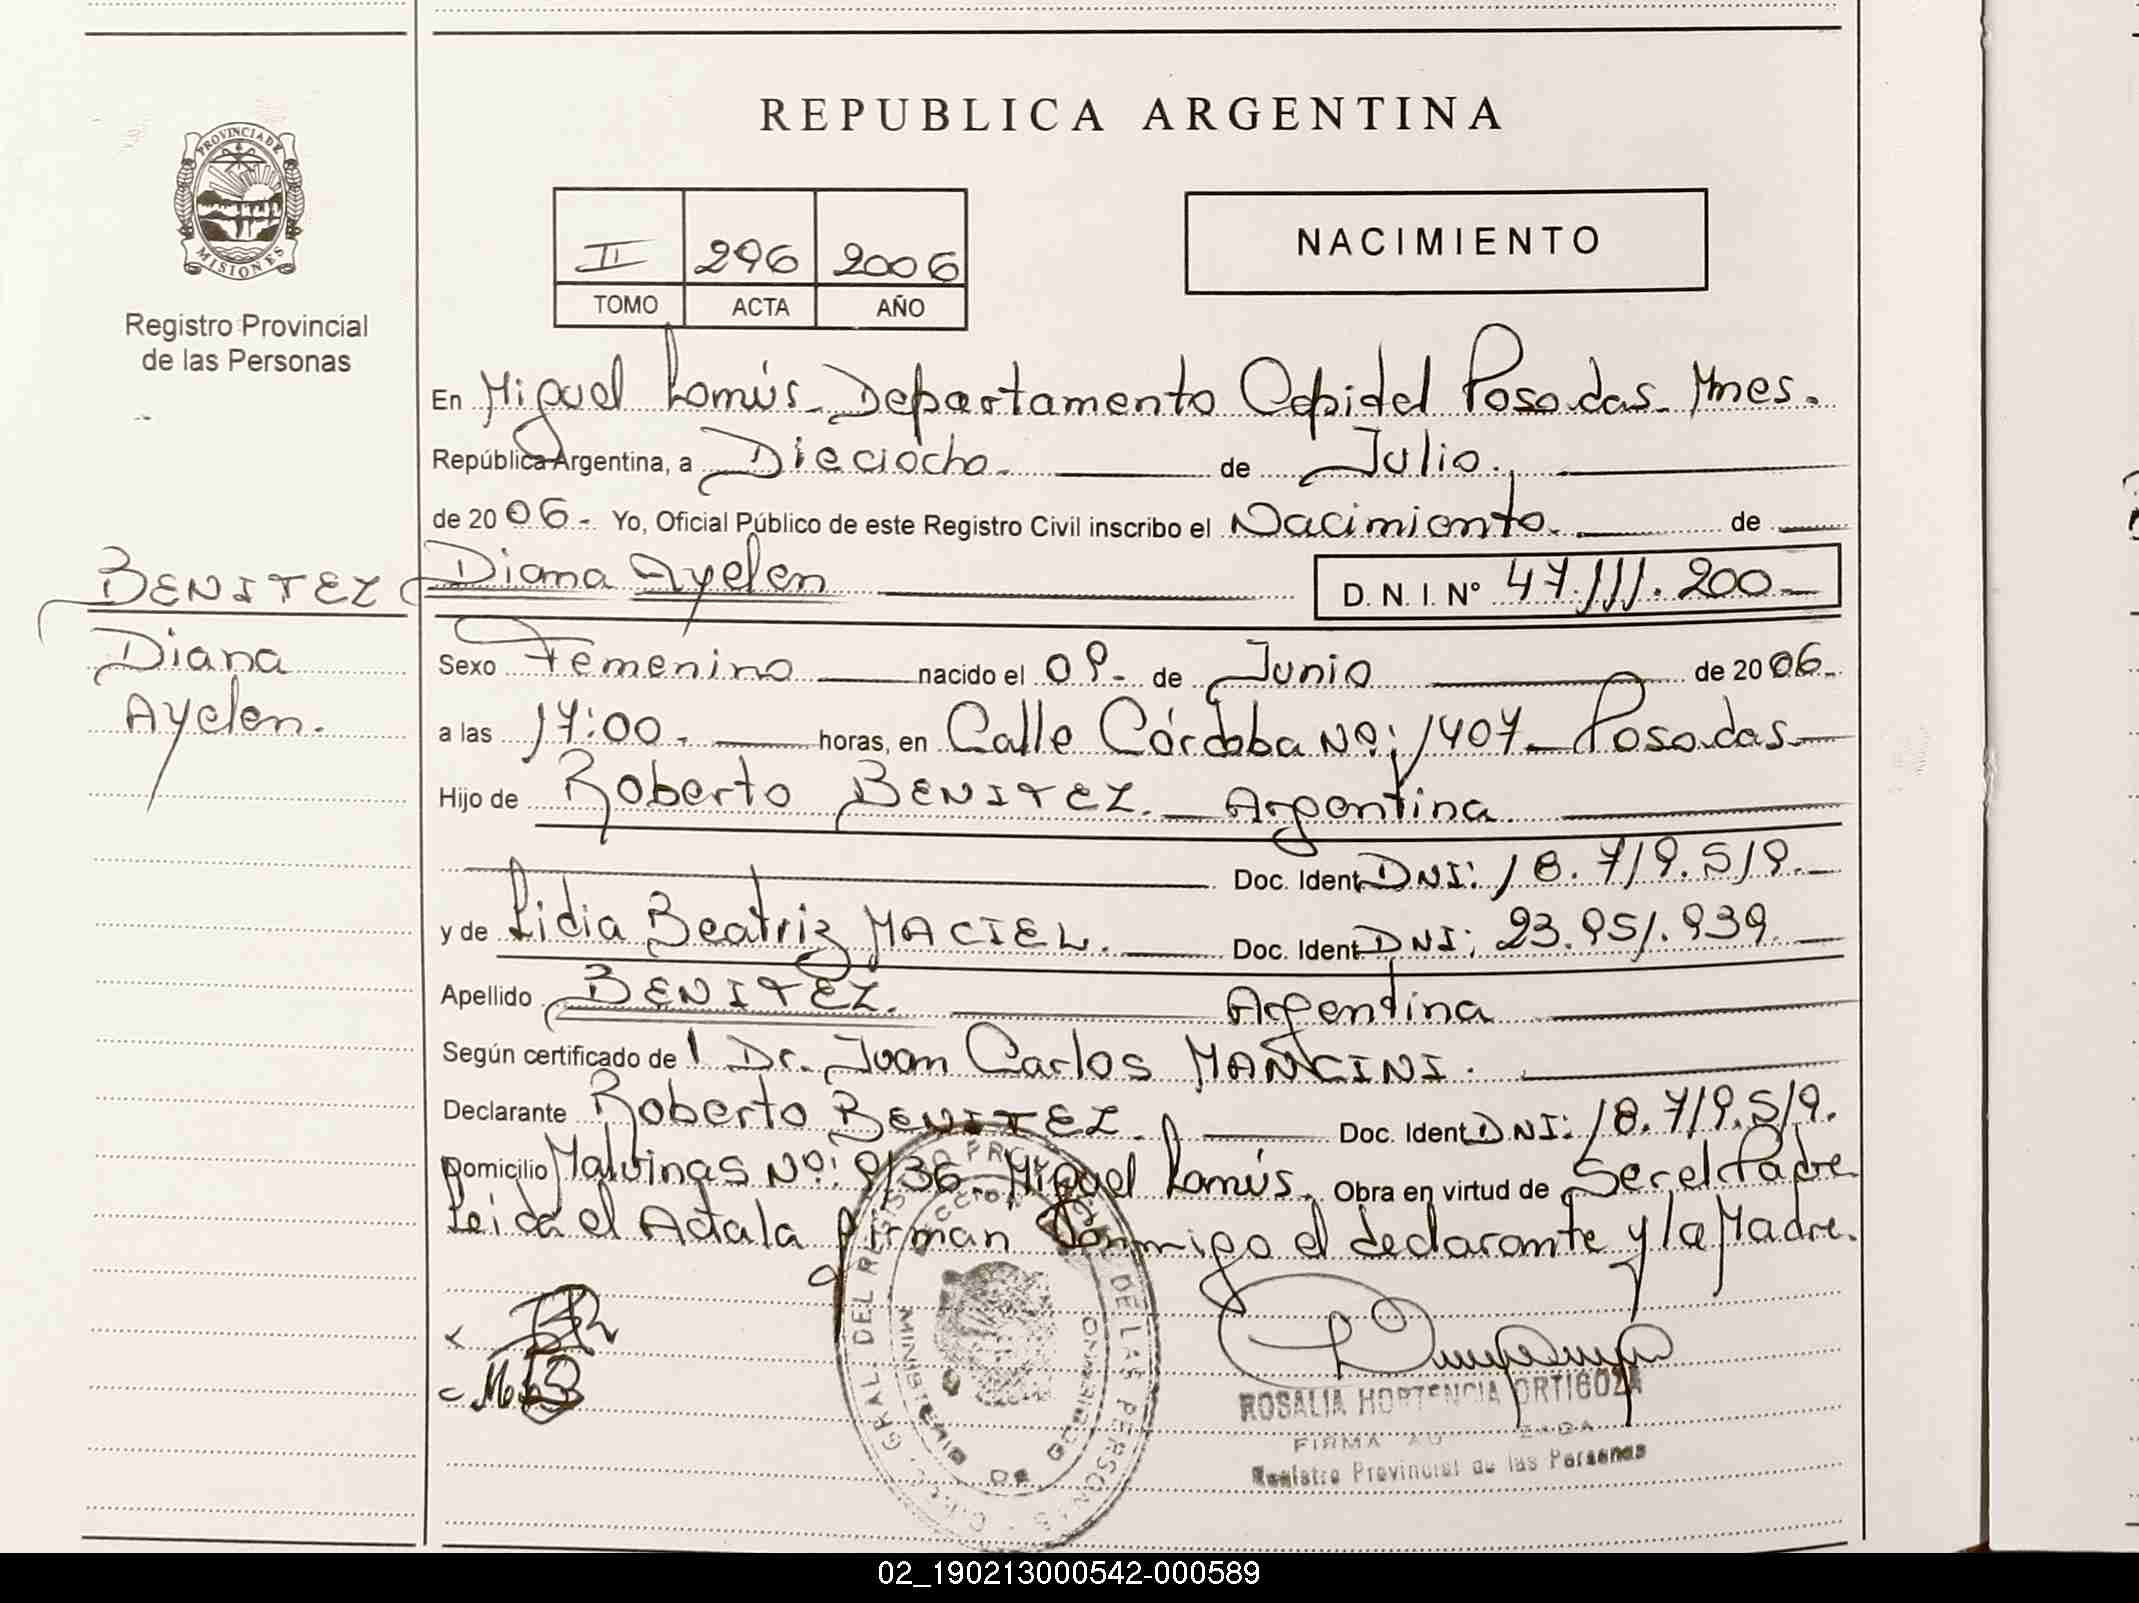 PROVINCIA DE
MISIONES
Registro Provincial
de las Personas
BENITEZ
Diana
Ayelen.
REPUBLICA ARGENTINA
II 296 2006
TOMO ACTA AÑO
NACIMIENTO
En Miguel Lanús- Departamento Capital Posadas- Mnes.
República Argentina, a Dieciocho. de Julio.
de 20 06.- Yo, Oficial Público de este Registro Civil inscribo el Nacimiento. de
Diana Ayelen D. N. I. Nº 47.111.200-
Sexo Femenino nacido el 09- de Junio de 20 06.
a las 17:00. horas, en Calle Córdoba Nº: 1407- Posadas-
Hijo de Roberto BENITEZ. Argentina
Doc. Ident. DNI: 18.719.519.-
y de Lidia Beatriz MACIEL. Doc. Ident. DNI: 23.951.939.
Apellido BENITEZ. Argentina
Según certificado de l Dr. Juan Carlos MANCINI.
Declarante Roberto BENITEZ. Doc. Ident. DNI: 18.719.519.
Domicilio Malvinas Nº: 9136- Miguel Lanús. Obra en virtud de Ser el Padre
Leida el Acta la firman Conmigo el declarante y la Madre.
ROSALIA HORTENCIA ORTIGOZA
FIRMA
Registro Provincial de las Personas
GRAL. DEL REGISTRO PROVINCIAL DE LAS PERSONAS
MINISTERIO DE GOBIERNO
02_190213000542-000589